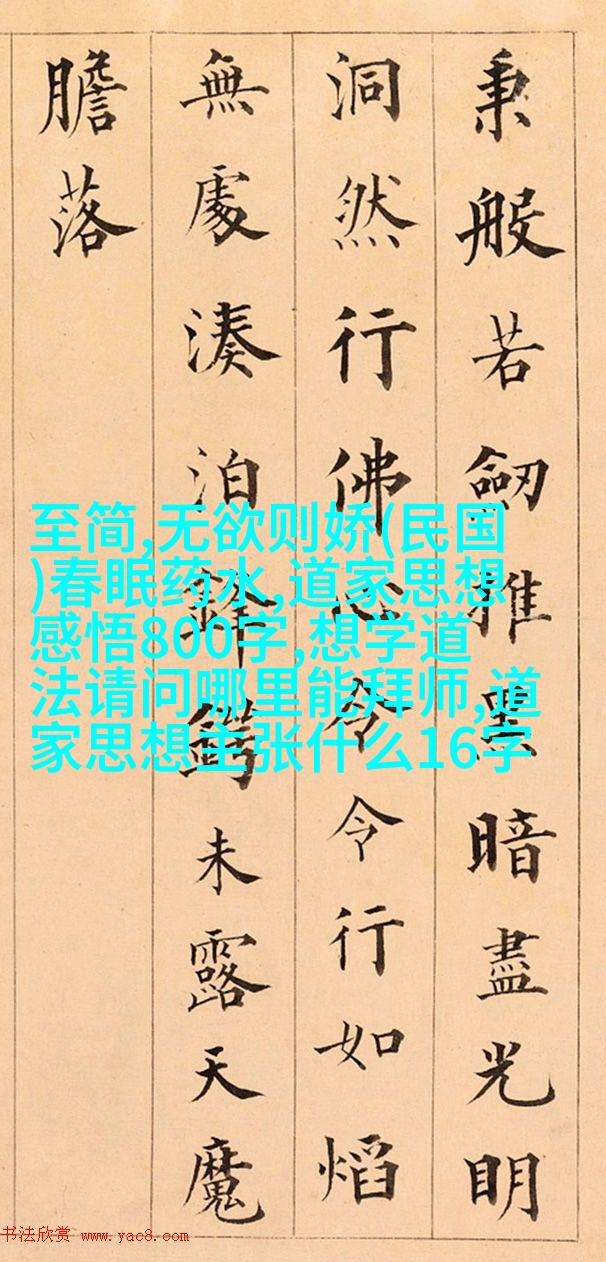 秉般若劒黑暗盡光明
洞然行佛心令令行如熖
無處湊泊鋒鍔未露天魔
膽落
至简,无欲则娇(民国
)春眠药水,道家思想
感悟800字,想学道
法请问哪里能拜师,道
家思想主张什么16字
书法欣赏 www.yac8.com